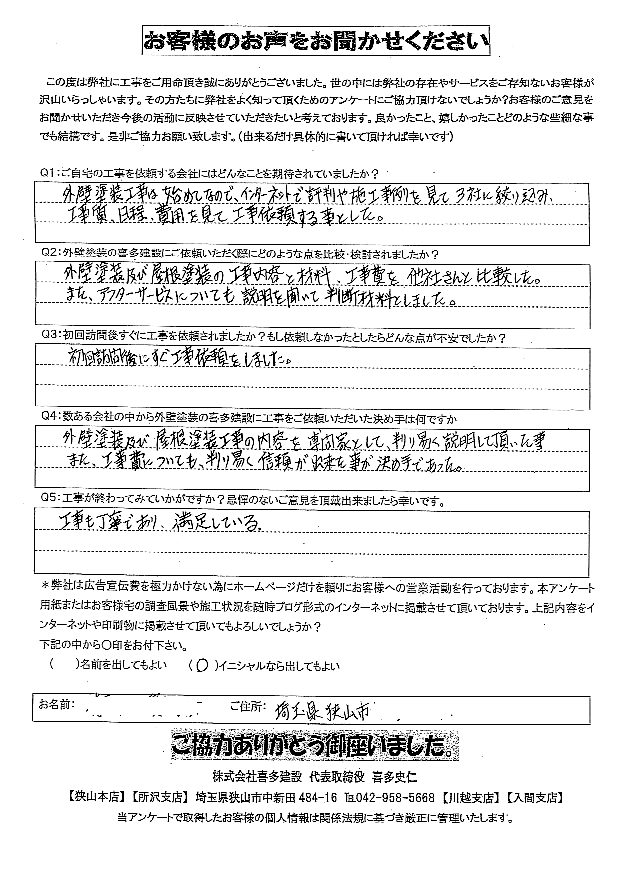 お客様のお声をお聞かせください
この度は弊社に工事をご用命頂き誠にありがとうございました。世の中には弊社の存在やサービスをご存知ないお客様が
沢山いらっしゃいます。その方たちに弊社をよく知って頂くためのアンケートにご協力頂けないでしょうか?お客様のご意見を
お聞かせいただき今後の活動に反映させていただきたいと考えております。良かったこと、嬉しかったことどのような些細な事
でも結構です。是非ご協力お願い致します。(出来るだけ具体的に書いて頂ければ幸いです)
Q1:ご自宅の工事を依頼する会社にはどんなことを期待されていましたか?
外壁塗装工事は始めてなので、インターネットで評判や施工事例を見て3社に絞り込み、
工事質、日程、費用を見て工事依頼する事とした。
Q2:外壁塗装の喜多建設にご依頼いただく際にどのような点を比較・検討されましたか?
外壁塗装及び屋根塗装の工事内容と材料、工事費を他社さんと比較した。
また、アフターサービスについても説明を聞いて判断材料としました。
Q3:初回訪問後すぐに工事を依頼されましたか?もし依頼しなかったとしたらどんな点が不安でしたか?
初回訪問後にすぐ工事依頼をしました。
Q4:数ある会社の中から外壁塗装の喜多建設に工事をご依頼いただいた決め手は何ですか
外壁塗装及び屋根塗装工事の内容を専門家として、判り易く説明して頂いた事
また、工事費についても、判り易く信頼が出来た事が決め手であった。
Q5:工事が終わってみていかがですか?忌憚のないご意見を頂戴出来ましたら幸いです。
工事も丁寧であり、満足している。
*弊社は広告宣伝費を極力かけない為にホームページだけを頼りにお客様への営業活動を行っております。本アンケート
用紙またはお客様宅の調査風景や施工状況を随時ブログ形式のインターネットに掲載させて頂いております。上記内容をイ
ンターネットや印刷物に掲載させて頂いてもよろしいでしょうか?
下記の中から〇印をお付下さい。
( )名前を出してもよい (〇)イニシャルなら出してもよい
お名前: ご住所: 埼玉県狭山市
ご協力ありがとう御座いました。
株式会社喜多建設 代表取締役 喜多史仁
【狭山本店】【所沢支店】 埼玉県狭山市中新田484-16 ℡042-958-5668 【川越支店】【入間支店】
当アンケートで取得したお客様の個人情報は関係法規に基づき厳正に管理いたします。